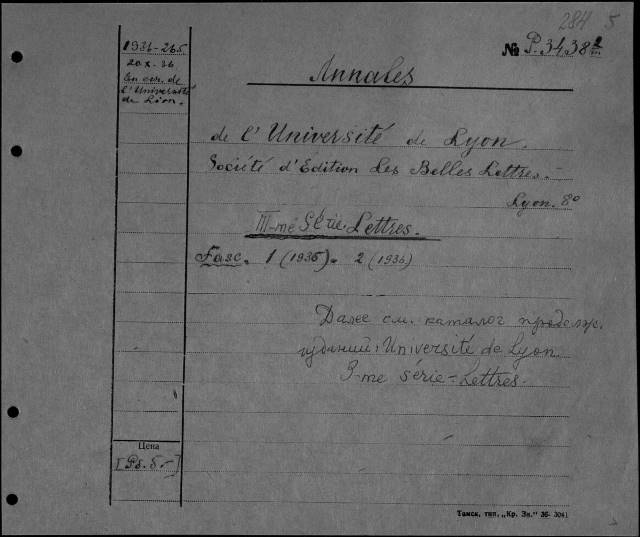 284 5
№ P.3438
1936-265
20.x.36
l'Université
de Lion.
Annales
de l'Université de Lyon.
Société d'Edition Les Belles Lettres. -
Lyon. 8º
III-mé Série Lettres.
Fasc. 1 (1935). 2 (1936)
Далее см. каталог продолж.
изданий: Université de Lyon.
3-me série - Lettres.
Цена
Томск, тип. „Кр. Зн.“ 36- 3041